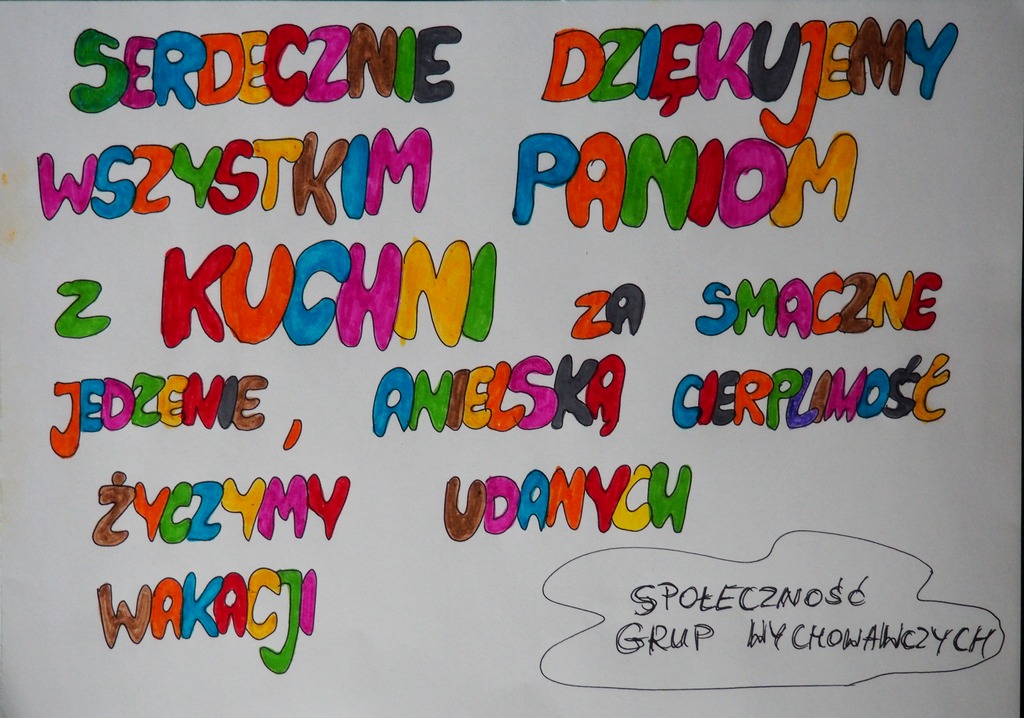 SERDECZNIE DZIĘKUJEMY
WSZYSTKIM PANIOM
Z KUCHNI ZA SMACZNE
JEDZENIE, ANIELSKĄ CIERPLIWOŚĆ
ŻYCZYMY UDANYCH
WAKACJI
SPOŁECZNOŚĆ
GRUP WYCHOWAWCZYCH